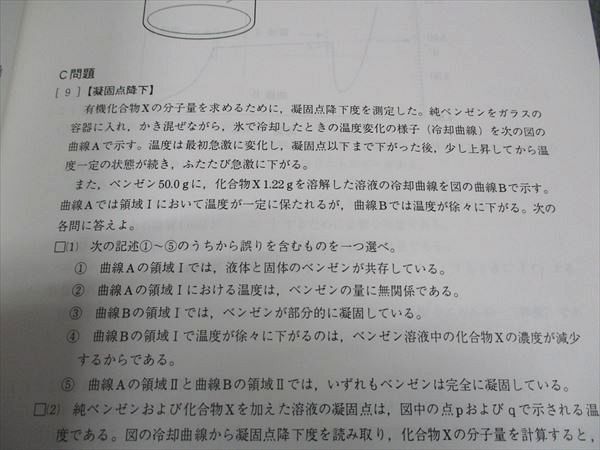 C問題
[9]【凝固点降下】
有機化合物Xの分子量を求めるために,凝固点降下度を測定した。純ベンゼンをガラスの
容器に入れ,かき混ぜながら,氷で冷却したときの温度変化の様子（冷却曲線）を次の図の
曲線Aで示す。温度は最初急激に変化し,凝固点以下まで下がった後,少し上昇してから温
度一定の状態が続き,ふたたび急激に下がる。
また,ベンゼン50.0gに,化合物X1.22gを溶解した溶液の冷却曲線を図の曲線Bで示す。
曲線Aでは領域Ⅰにおいて温度が一定に保たれるが,曲線Bでは温度が徐々に下がる。次の
各問に答えよ。
□(1) 次の記述①～⑤のうちから誤りを含むものを一つ選べ。
① 曲線Aの領域Ⅰでは,液体と固体のベンゼンが共存している。
② 曲線Aの領域Ⅰにおける温度は,ベンゼンの量に無関係である。
③ 曲線Bの領域Ⅰでは,ベンゼンが部分的に凝固している。
④ 曲線Bの領域Ⅰで温度が徐々に下がるのは,ベンゼン溶液中の化合物Xの濃度が減少
するからである。
⑤ 曲線Aの領域Ⅱと曲線Bの領域Ⅱでは,いずれもベンゼンは完全に凝固している。
□(2) 純ベンゼンおよび化合物Xを加えた溶液の凝固点は,図中の点pおよびqで示される温
度である。図の冷却曲線から凝固点降下度を読み取り,化合物Xの分子量を計算すると,